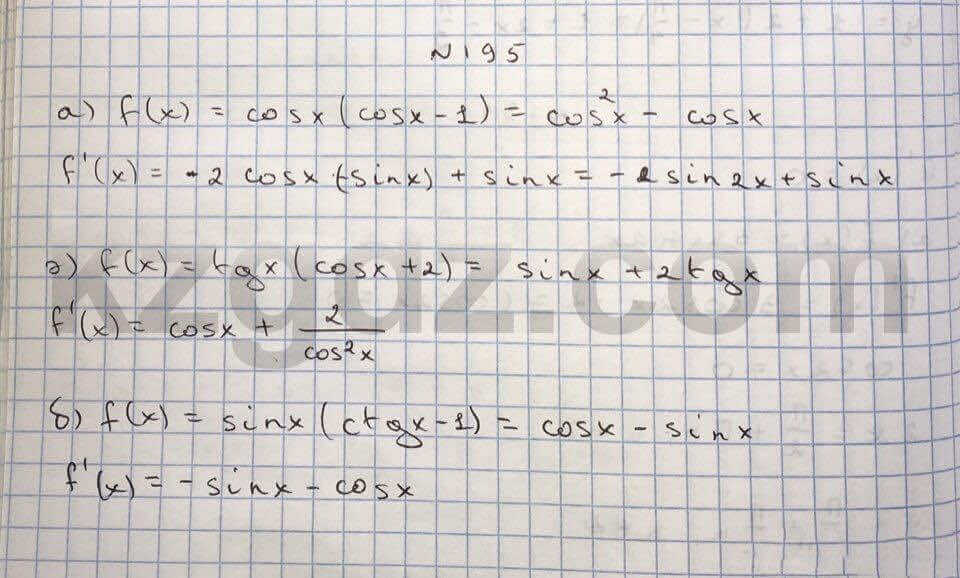 N195
а) f(x) = cosx(cosx-1) = cos²x - cosx
f'(x) = -2 cosx·(-sinx) + sinx = - sin2x + sinx
г) f(x) = tgx(cosx+2) = sinx + 2tgx
f'(x) = cosx + 2/cos²x
б) f(x) = sinx(ctgx-1) = cosx - sinx
f'(x) = -sinx - cosx
kzgdz.com